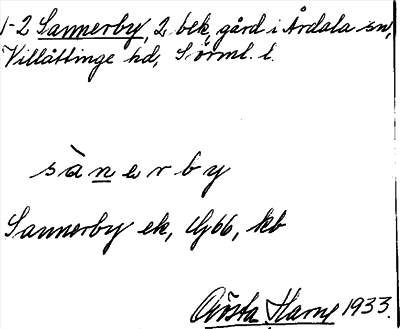 1-2 Sannerby, 2 bek, gård i Årdala sn,
Villåttinge hd, Sörml. l.
sànerby
Sannerby ek, Gj66, kb
Gösta Harne 1933.